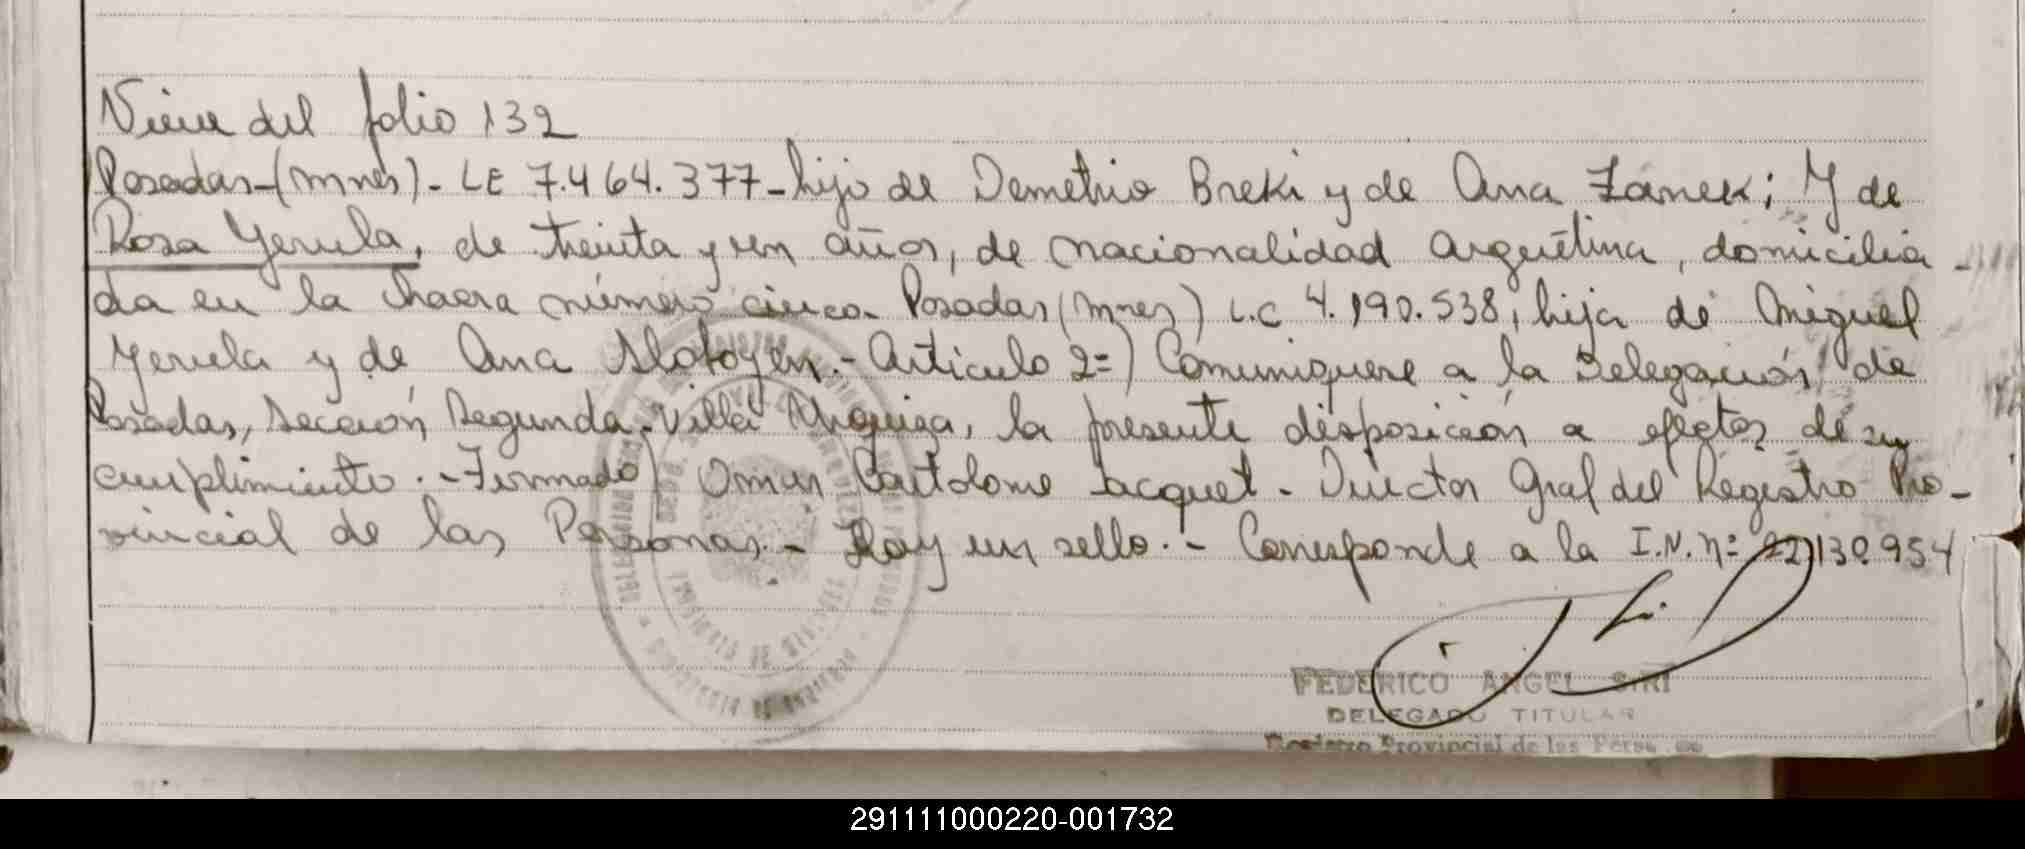 Viene del folio 132
Posadas-(Mnes)- LE 7.464.377-hijo de Demetrio Breki y de Ana Zanek; Y de
Rosa Yerula, de treinta y un años, de nacionalidad Argentina, domicilia-
da en la chacra número cinco Posadas (Mnes) L.C 4.190.538, hija de Miguel
Yerula y de Ana Slotoyen.- Articulo 2=) Comuniquese a la Delegación de
Posadas, Sección Segunda-Villa Urquiza, la presente disposición a efectos de su
cumplimiento.-Firmado) Omar Bartolome Jacquet- Director Gral del Registro Pro-
vincial de las Personas.- Hay un sello.- Corresponde a la I.N.n= 130954
FEDERICO ANGEL SIRI
DELEGADO TITULAR
Registro Provincial de las
291111000220-001732